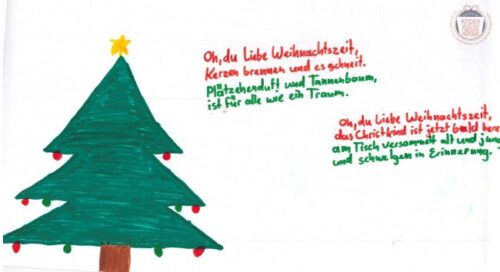 Oh, du liebe Weihnachtszeit,
Kerzen brennen und es schneit.
Plätzchenduft und Tannenbaum,
ist für alle wie ein Traum.
Oh, du liebe Weihnachtszeit,
das Christkind ist jetzt bald bere
am Tisch versammelt alt und jun
und schwelgen in Erinnerung.